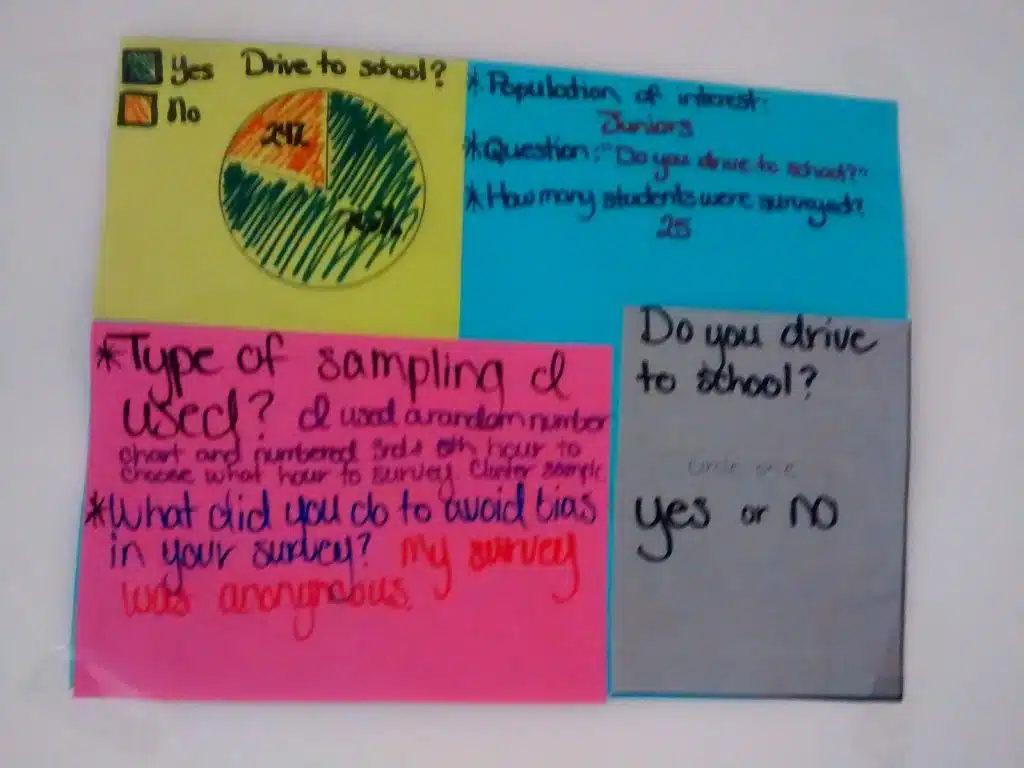 Yes Drive to school?
No
24%
76%
*Population of interest:
Juniors
*Question: "Do you drive to school?"
*How many students were surveyed?
25
*Type of sampling I
used? I used a random number
chart and numbered 3rd & 6th hour to
choose what hour to survey. Cluster sample
*What did you do to avoid bias
in your survey? My survey
was anonymous.
Do you drive
to school?
Circle one
yes or no